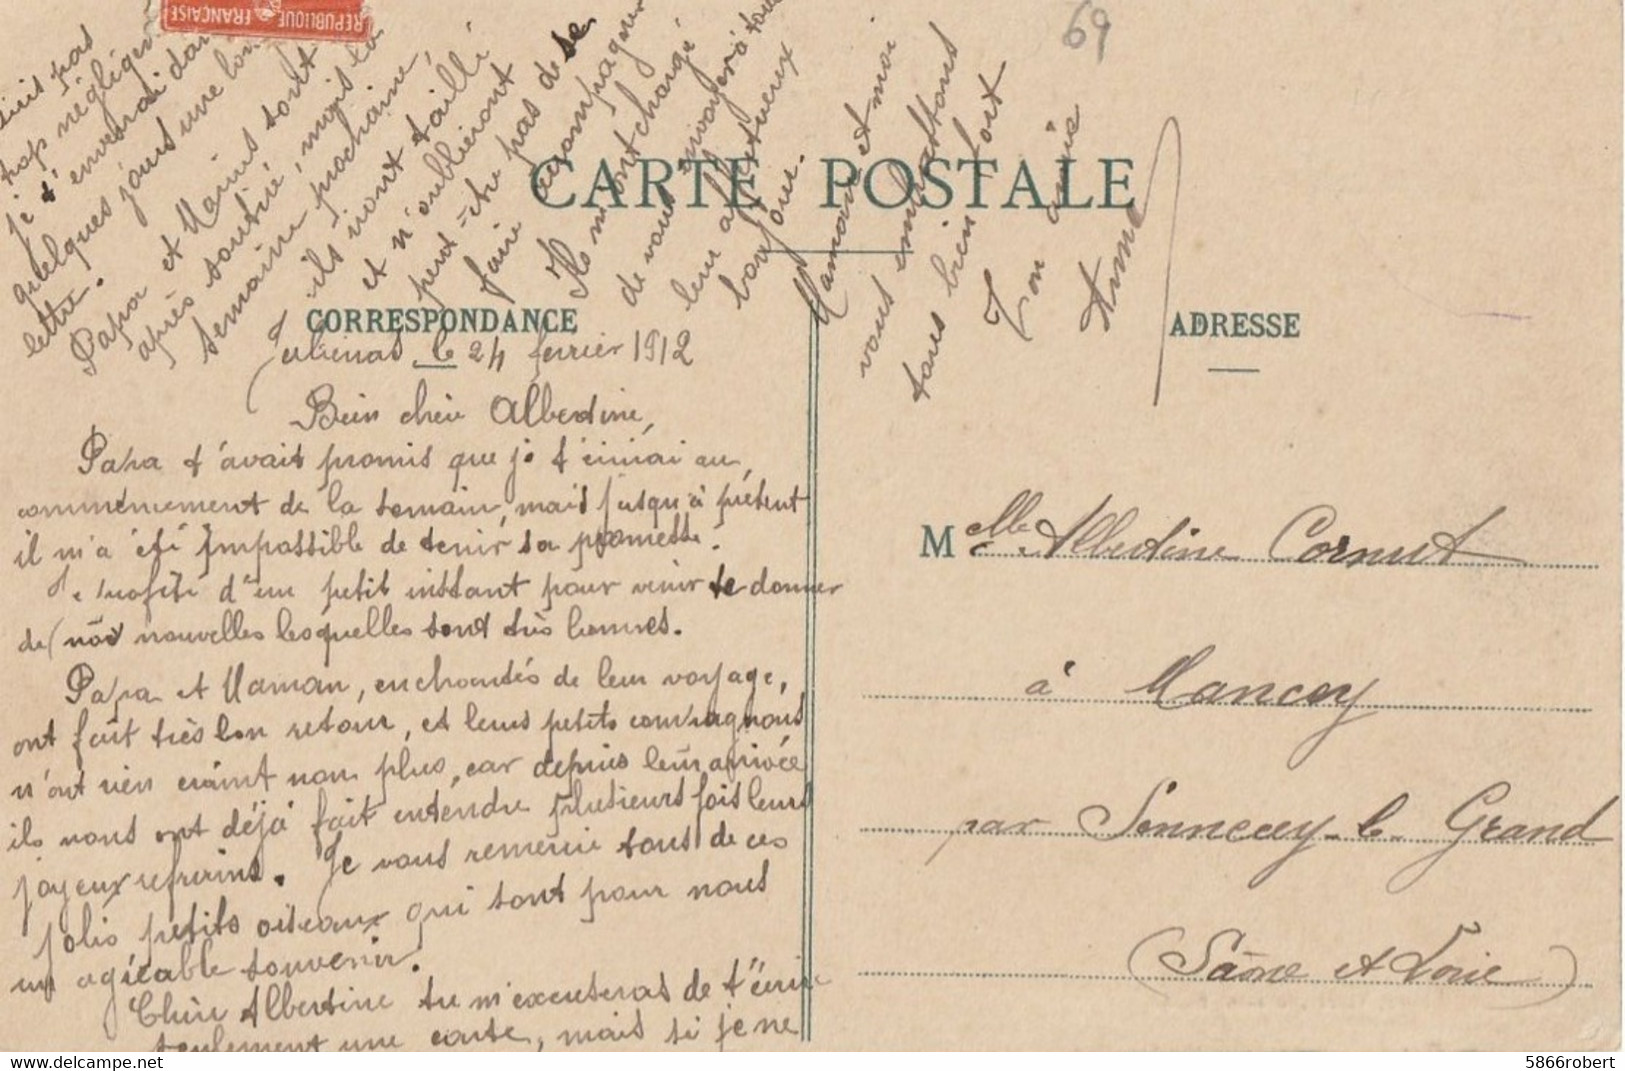 REPUBLIQUE FRANÇAISE
69
CARTE POSTALE
CORRESPONDANCE
ADRESSE
Julienas le 24 fevrier 1912
Bien chère Albertine,
Papa t'avait promis que je t'écrirai au
commencement de la semaine, mais jusqu'à présent
il m'a été impossible de tenir sa promesse.
Je profite d'un petit instant pour venir te donner
de nos nouvelles lesquelles sont très bonnes.
Papa et Maman, enchantés de leur voyage,
ont fait très bon retour, et leurs petits compagnons
n'ont rien craint non plus, car depuis leur arrivée
ils nous ont déjà fait entendre plusieurs fois leurs
joyeux refrains. Je vous remercie tous de ces
jolis petits oiseaux qui sont pour nous
un agréable souvenir.
Chère Albertine tu m'excuseras de t'écrire
seulement une carte, mais si je ne
suis pas
trop négligen
je t'enverrai dan
quelques jours une lon
lettre.
Papa et Marius sont
après sortiré, mais la
semaine prochaine,
ils iront tailli
et n'oublieront
peut-être pas de se
faire accompagner
Ils m'ont chargé
de vous envoyer à tous
leur affectueux
bonjour.
Maman et moi
vous embrassons
tous bien fort
Ton amie
Anna
Melle Albertine Cornut
à Mancey
par Sennecey-le-Grand
(Saône et Loire)
5866robert